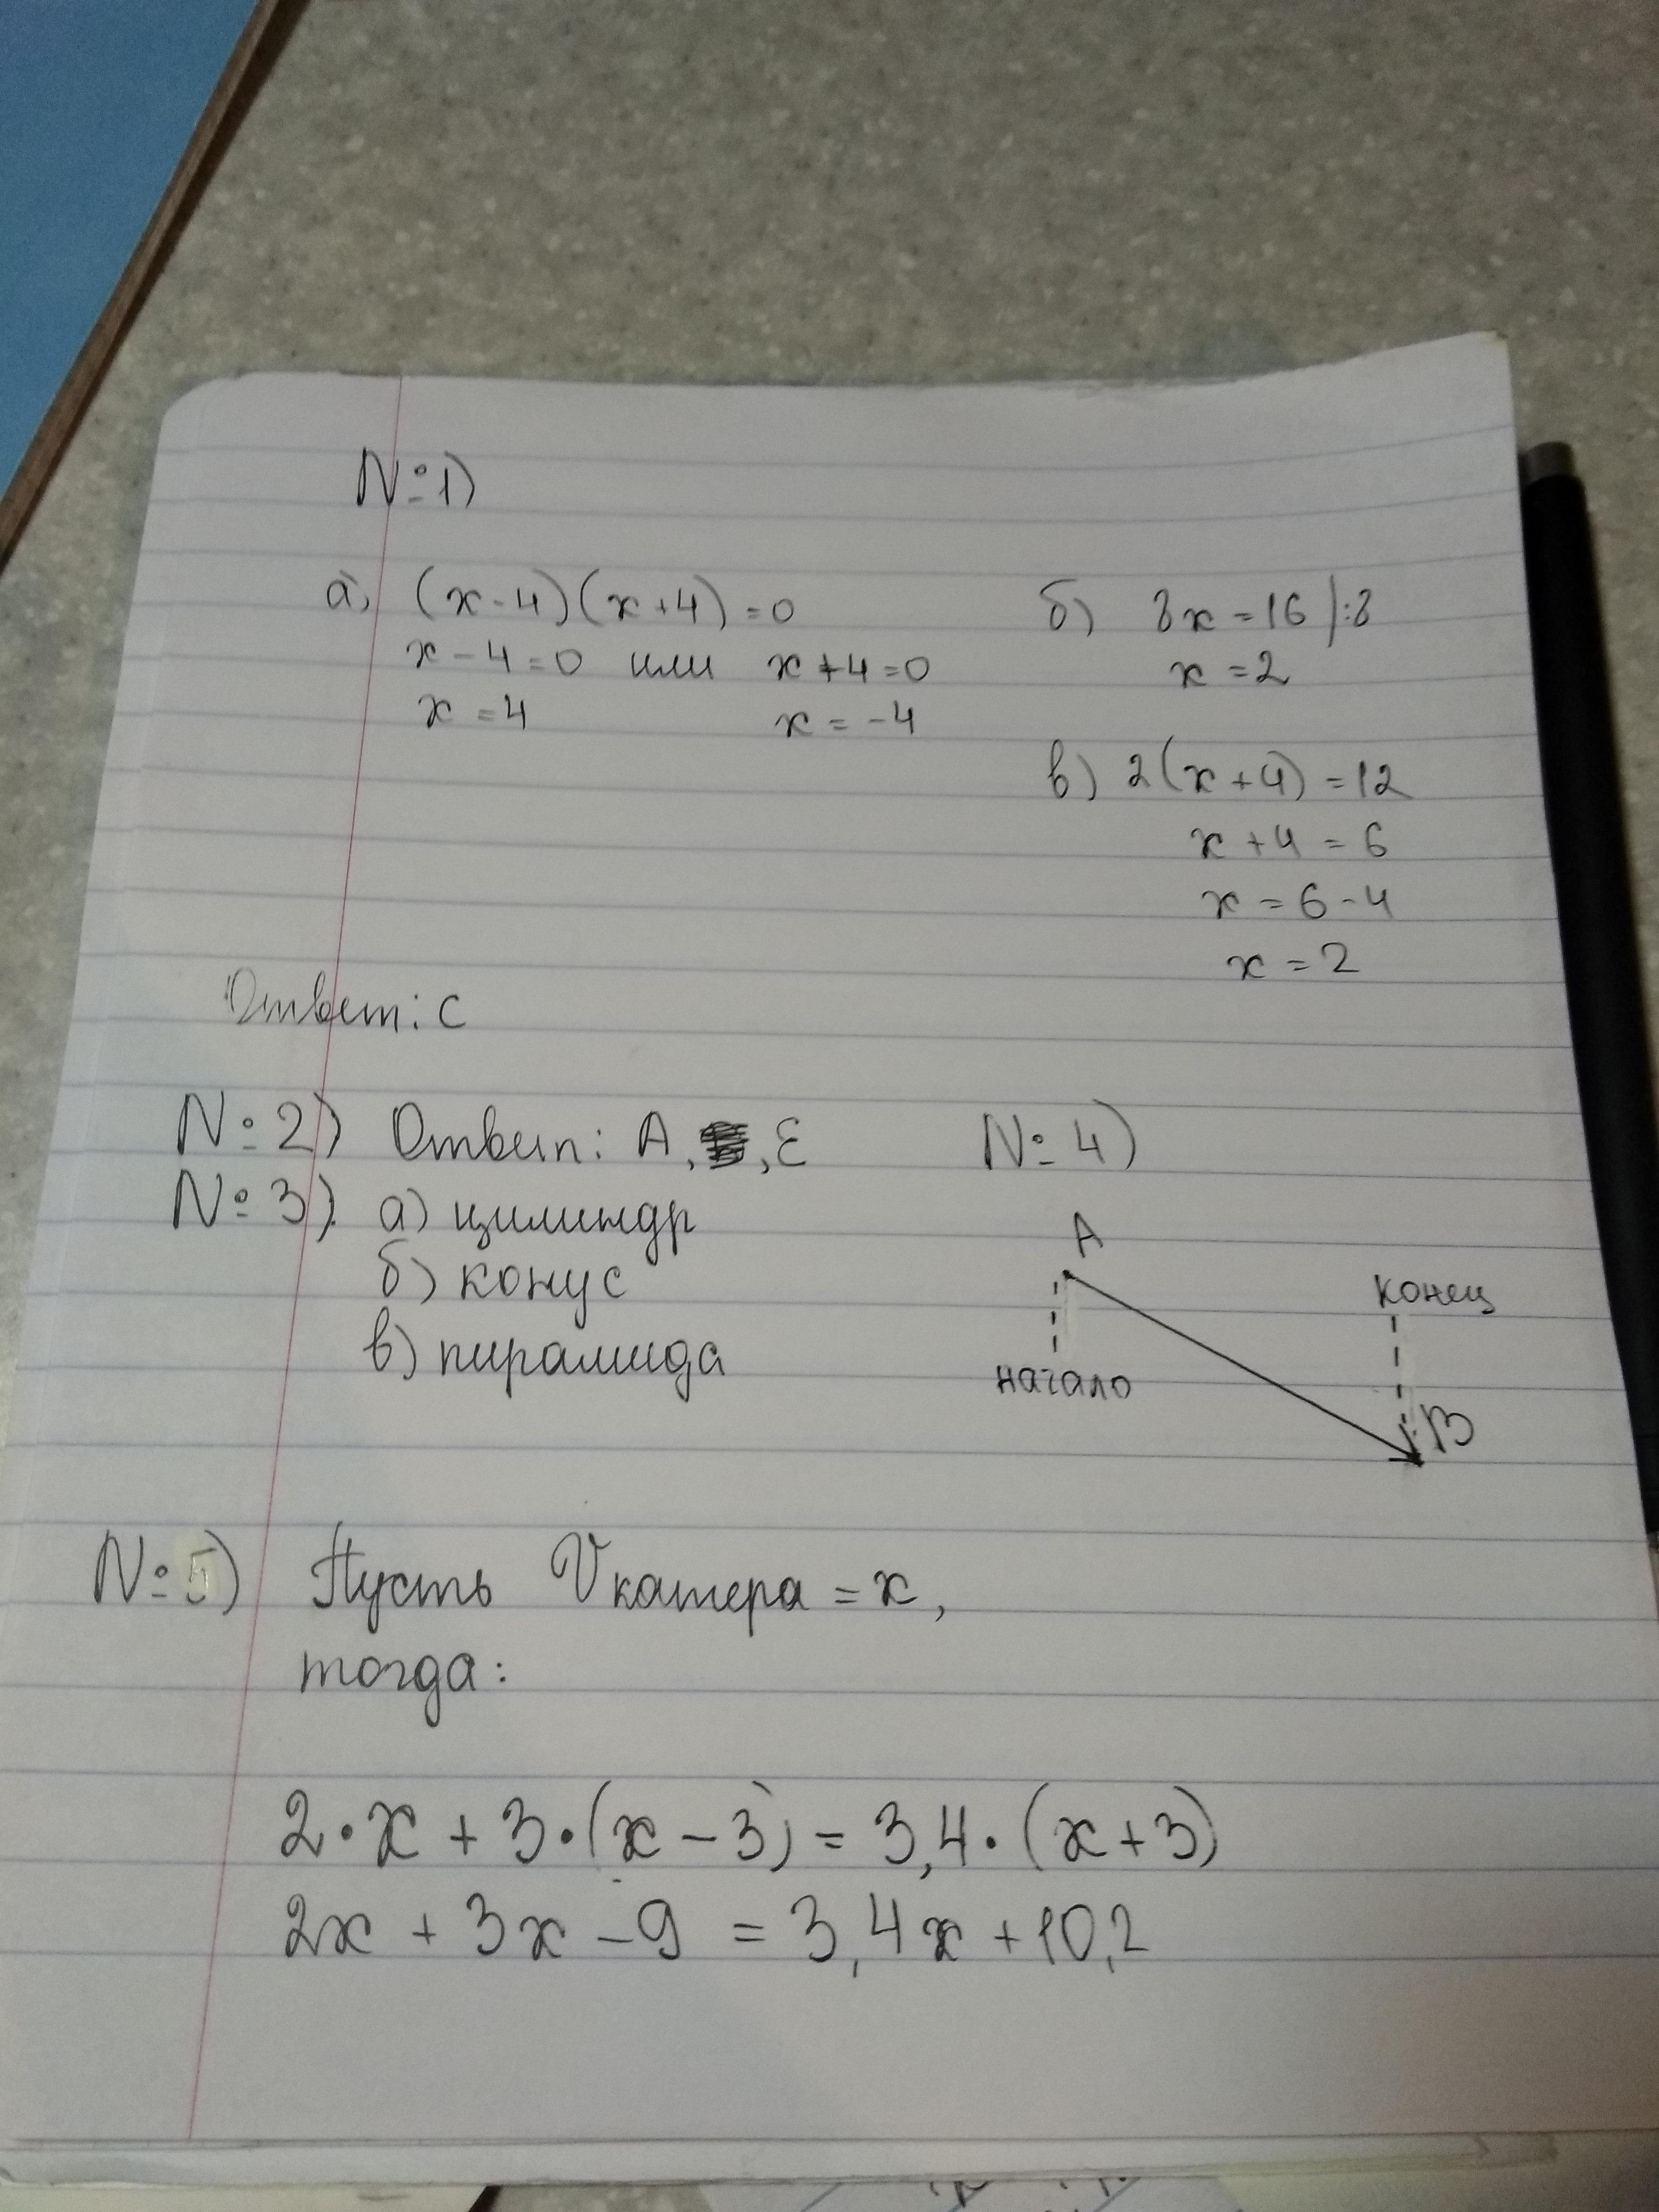 №1)
а) (x-4)(x+4)=0
x-4=0 или x+4=0
x=4 x=-4
б) 8x=16 |:8
x=2
в) 2(x+4)=12
x+4=6
x=6-4
x=2
Ответ: С
№2) Ответ: А, , Е
№3) а) цилиндр
б) конус
в) пирамида
№4)
А
конец
начало
В
№5) Пусть Vкатера = x,
тогда:
2·x+3·(x-3)=3,4·(x+3)
2x+3x-9=3,4x+10,2